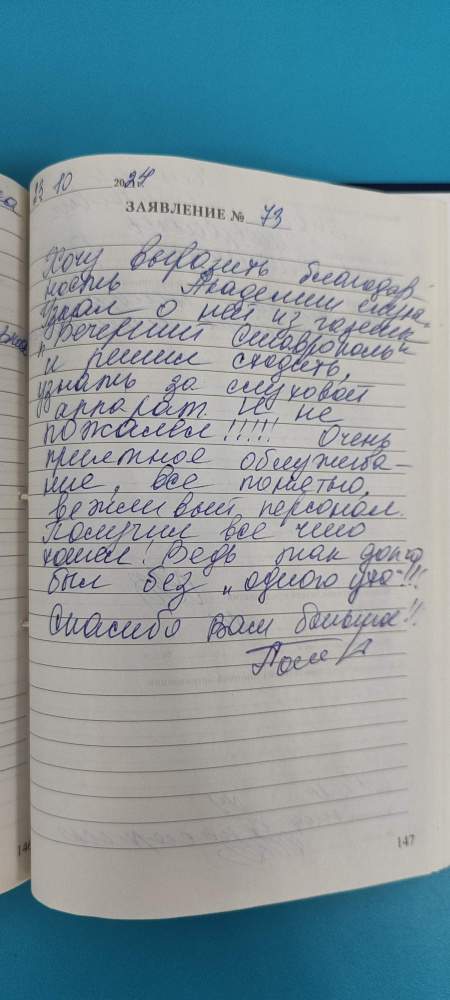 23 10 2024 г.
ЗАЯВЛЕНИЕ № 73
Хочу выразить благодар-
ность Академии слуха.
Узнал о ней из газеты
"Вечерний Ставрополь"
и решил сходить,
узнать за слуховой
аппарат И не
пожалел!!!!! Очень
приятное обслужива-
ние, все понятно,
вежливый персонал.
Получил все чего
хотел! Ведь так долго
был без "одного уха"!!!
Спасибо Вам большое!!
147